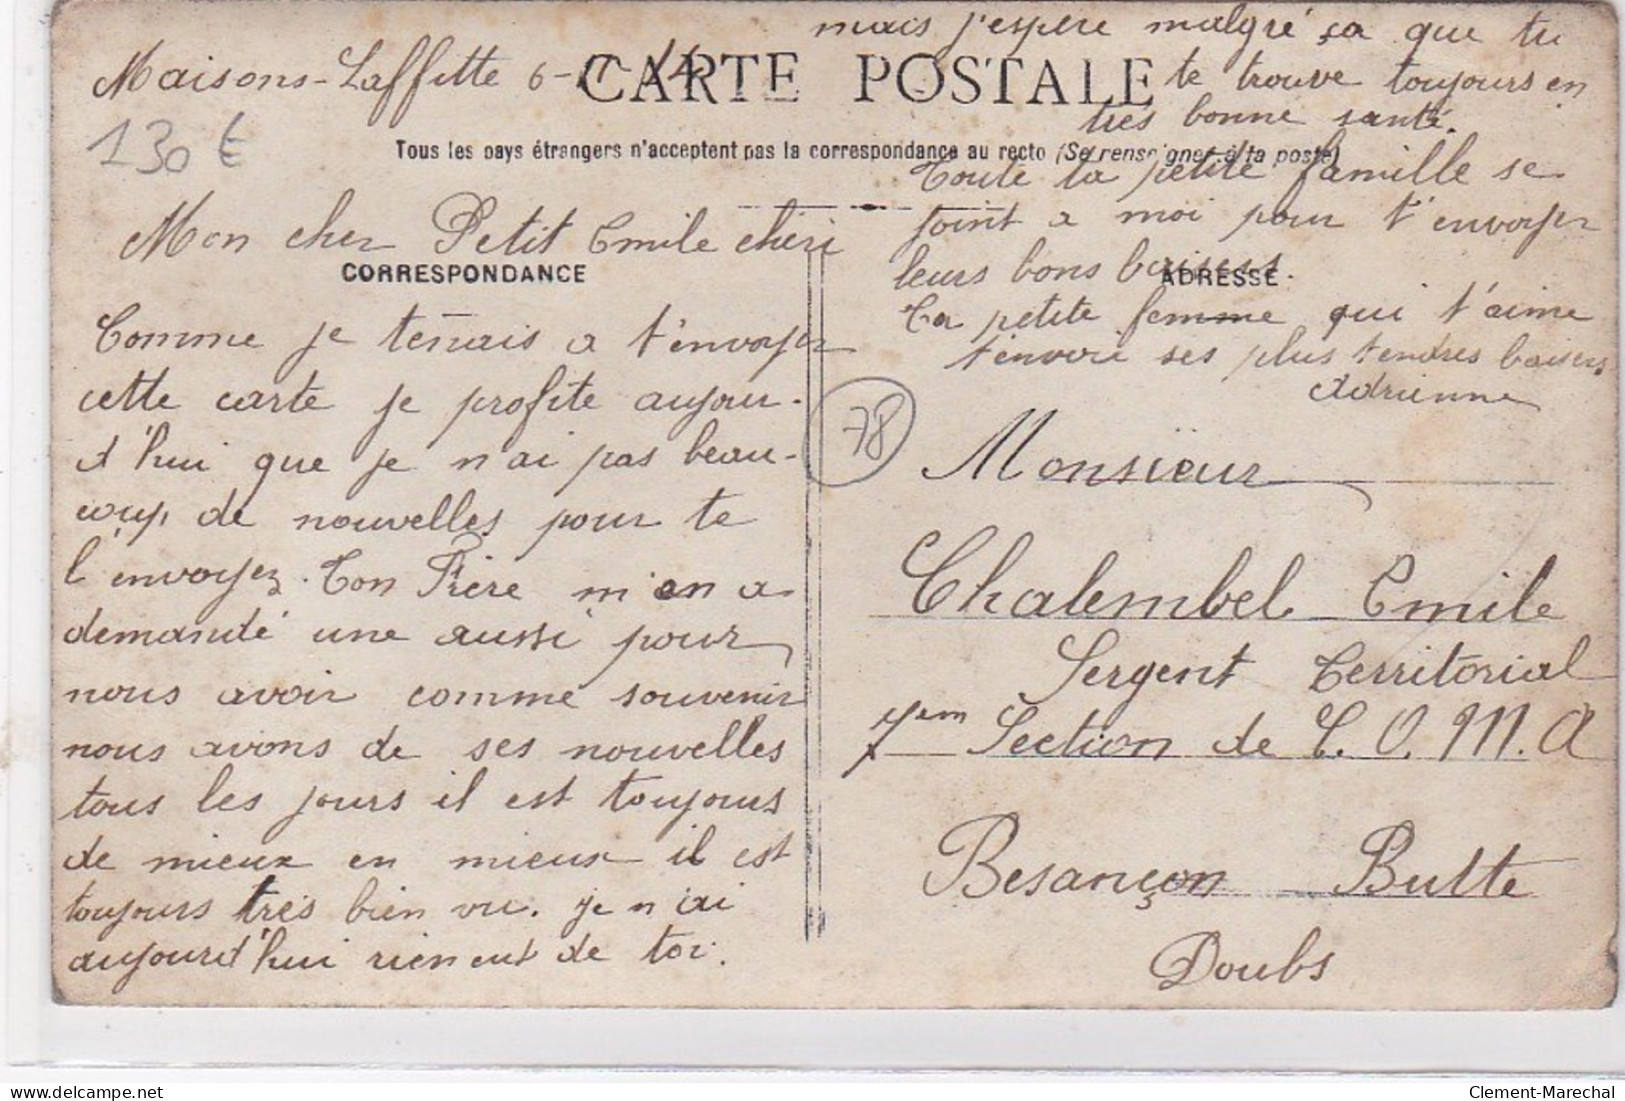 Maisons-Laffitte 6-
CARTE POSTALE
130 €
Tous les pays étrangers n'acceptent pas la correspondance au recto (Se renseigner à la poste)
Mon cher Petit Emile chéri
CORRESPONDANCE
Comme je tenais a t'envoyer
cette carte je profite aujour-
d'hui que je n'ai pas beau-
coup de nouvelles pour te
l'envoyez. Ton Frère m'en a
demandé une aussi pour
nous avoir comme souvenir
nous avons de ses nouvelles
tous les jours il est toujours
de mieux en mieux il est
toujours très bien vu. je n'ai
aujourd'hui rien eut de toi.
mais j'espère malgré ça que tu
te trouve toujours en
très bonne santé.
Toute ta petite famille se
joint a moi pour t'envoyer
leurs bons baisers.
ADRESSE
Ta petite femme qui t'aime
t'envoie ses plus tendres baisers
Adrienne
78
Monsieur
Chalembel Emile
Sergent Territorial
7em Section de C. O. M. A
Besançon Butte
Doubs
www.delcampe.net
Clement-Marechal